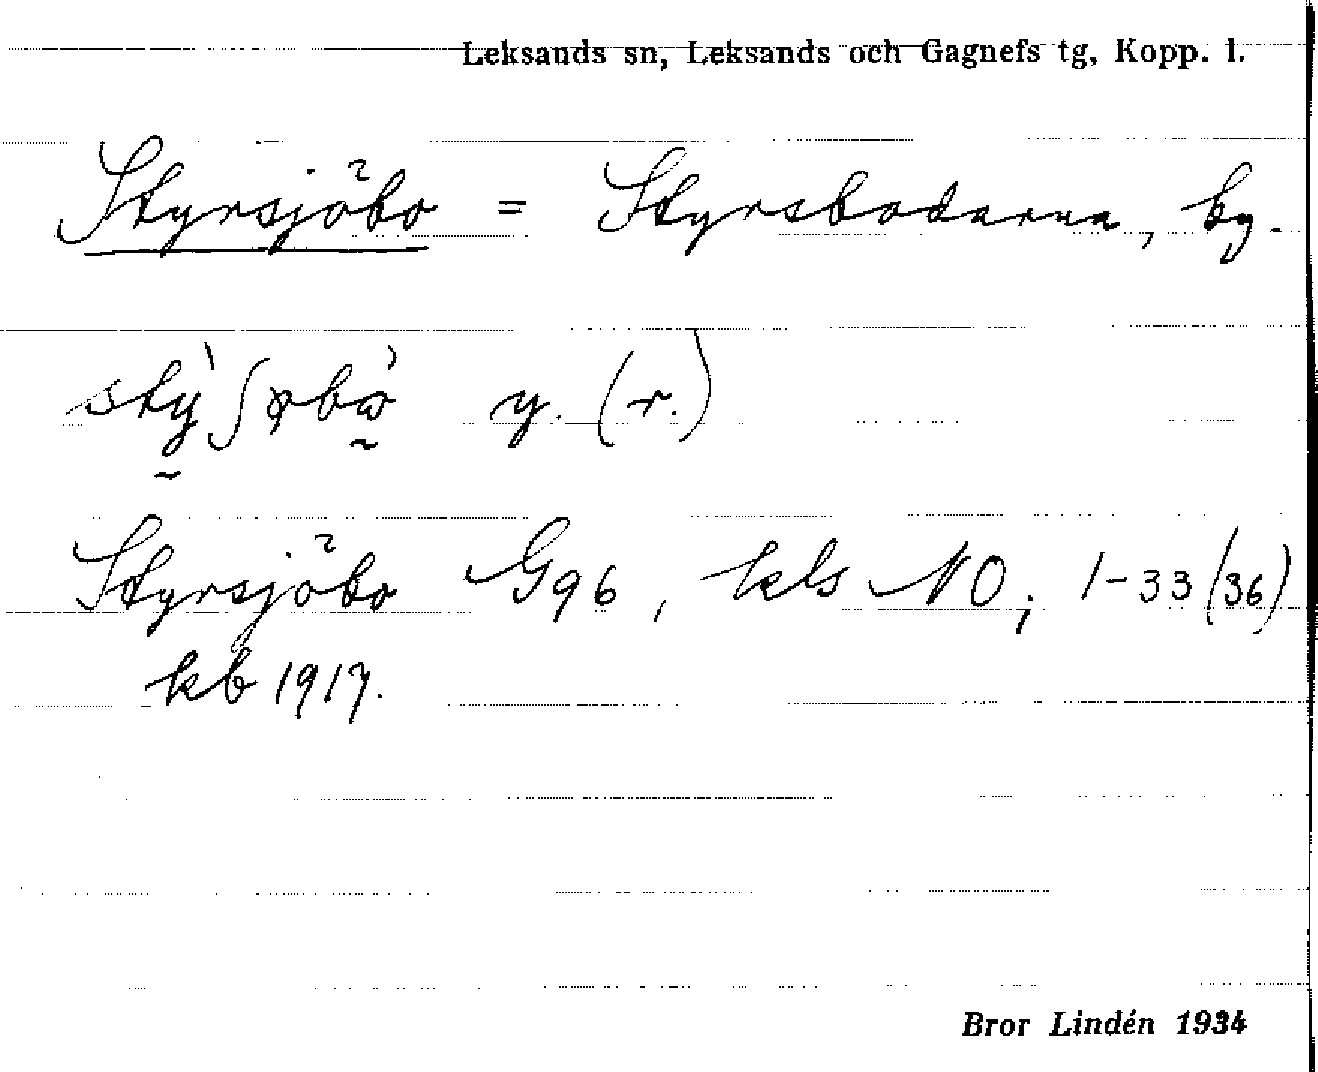 Leksands sn, Leksands och Gagnefs tg, Kopp. l.
Styrsjöbo = Styrsbodarna, by.
y. (r.)
Styrsjöbo G96, kls NO; 1-33 (36)
kb 1917.
Bror Lindén 1934